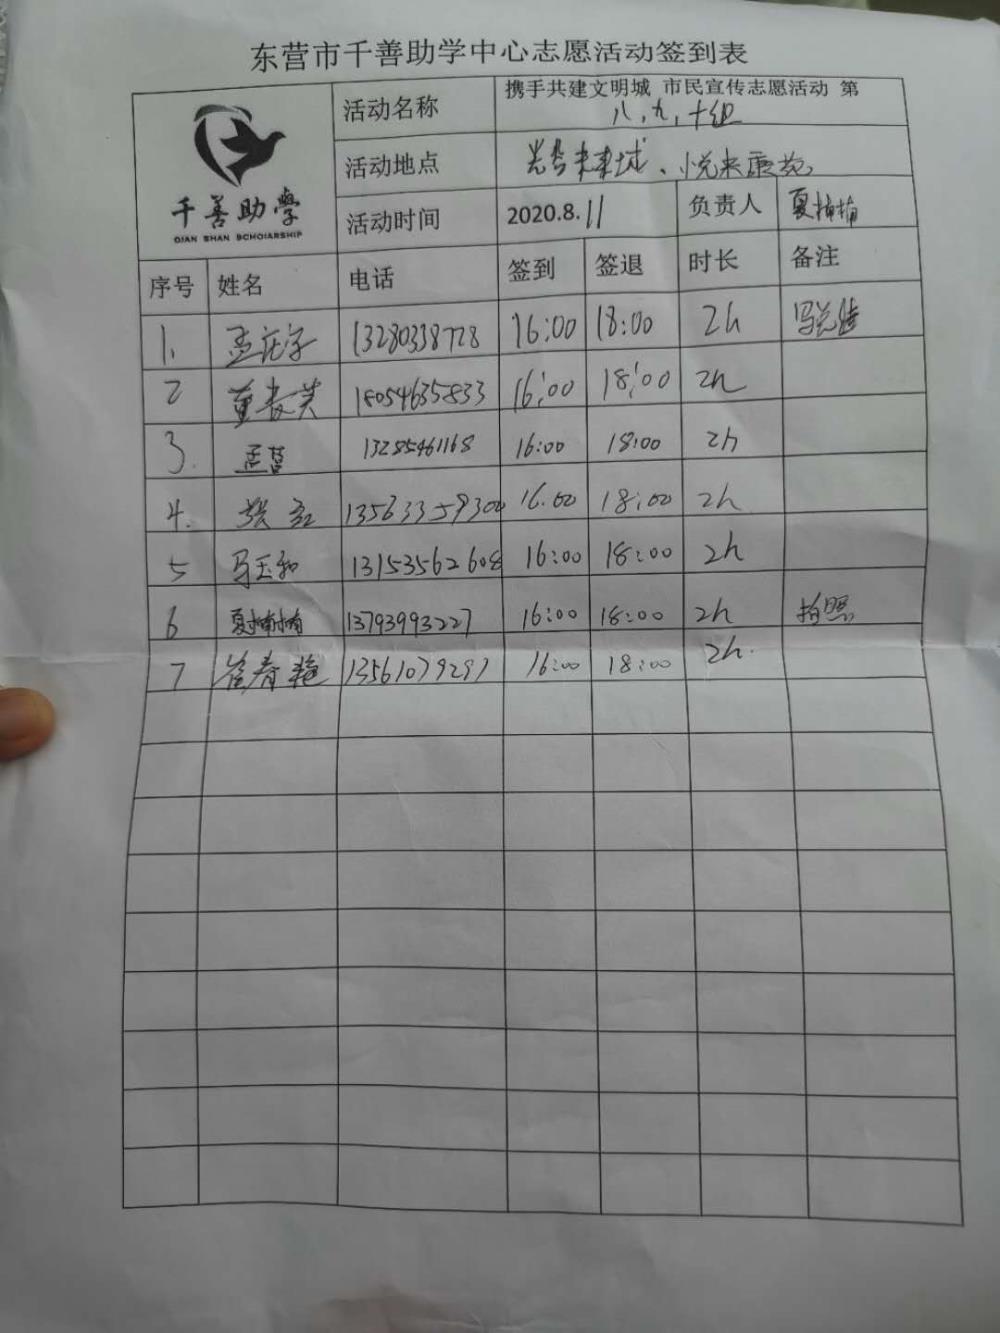 东营市千善助学中心志愿活动签到表
千善助学
QIAN SHAN SCHOIARSHIP
活动名称 携手共建文明城 市民宣传志愿活动 第
八、九、十组
活动地点 未来城、悦来康苑
活动时间 2020.8.11 负责人 夏楠楠
序号 姓名 电话 签到 签退 时长 备注
1. 孟庆字 13280338728 16:00 18:00 2h
2 董春英 18054635833 16:00 18:00 2h
3. 孟营 13285461168 16:00 18:00 2h
4. 13563359300 16:00 18:00 2h
5 马玉和 13153562608 16:00 18:00 2h
6 夏楠楠 13793993227 16:00 18:00 2h 拍照
7 崔春艳 13561079291 16:00 18:00 2h.